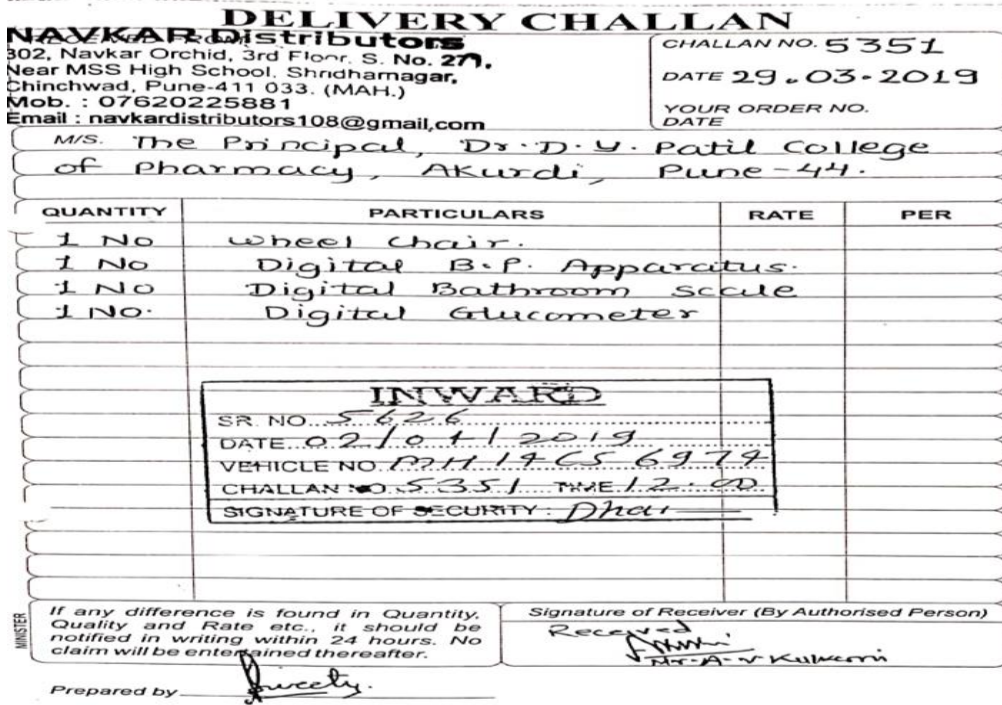 DELIVERY CHALLAN
NAVKAR Distributors
302, Navkar Orchid, 3rd Floor. S. No. 277,
Near MSS High School, Shridharnagar,
Chinchwad, Pune-411 033. (MAH.)
Mob. : 07620225881
Email : navkardistributors108@gmail.com
CHALLAN NO. 5351
DATE 29.03-2019
YOUR ORDER NO.
DATE
M/S. The Principal, Dr. D. Y. Patil College
of Pharmacy, Akurdi, Pune-44.
QUANTITY PARTICULARS RATE PER
1 No Wheel Chair.
1 No Digital B.P. Apparatus.
1 No Digital Bathroom Scale
1 No. Digital Glucometer
INWARD
SR. NO. 5626
DATE 02/04/2019
VEHICLE NO. MH 14 CS 6974
CHALLAN NO. 5351 TIME 12.00
SIGNATURE OF SECURITY :
If any difference is found in Quantity.
Quality and Rate etc., it should be
notified in writing within 24 hours. No
claim will be entertained thereafter.
Signature of Receiver (By Authorised Person)
Received
Mr. A. V Kulkarni
Prepared by
MINISTER